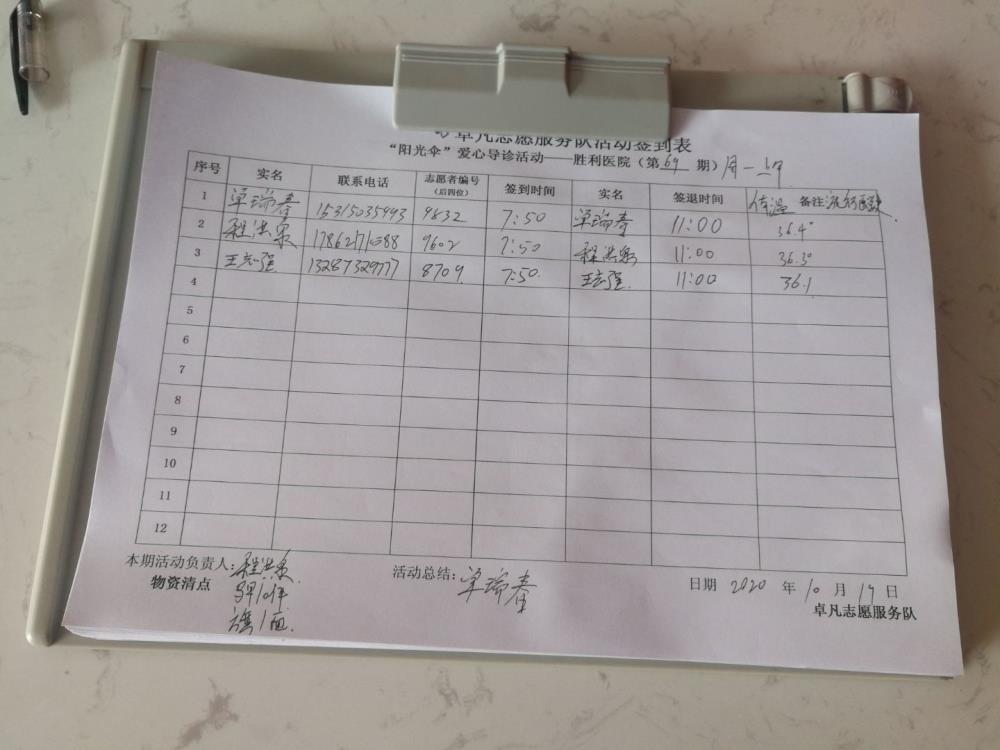 卓凡志愿服务队活动签到表
“阳光伞”爱心导诊活动——胜利医院（第69期）周一上午
序号 实名 联系电话 志愿者编号（后四位） 签到时间 实名 签退时间 体温 备注
1 单瑞春 15315035993 9832 7:50 单瑞春 11:00 36.4°
2 程洪泉 9602 7:50 程洪泉 11:00 36.3°
3 王志强 13287329777 8709 7:50. 王志强 11:00 36.1
4
5
6
7
8
9
10
11
12
本期活动负责人：程洪泉 活动总结：单瑞春 日期 2020 年 10 月 19 日
物资清点 卓凡志愿服务队
旗1面.